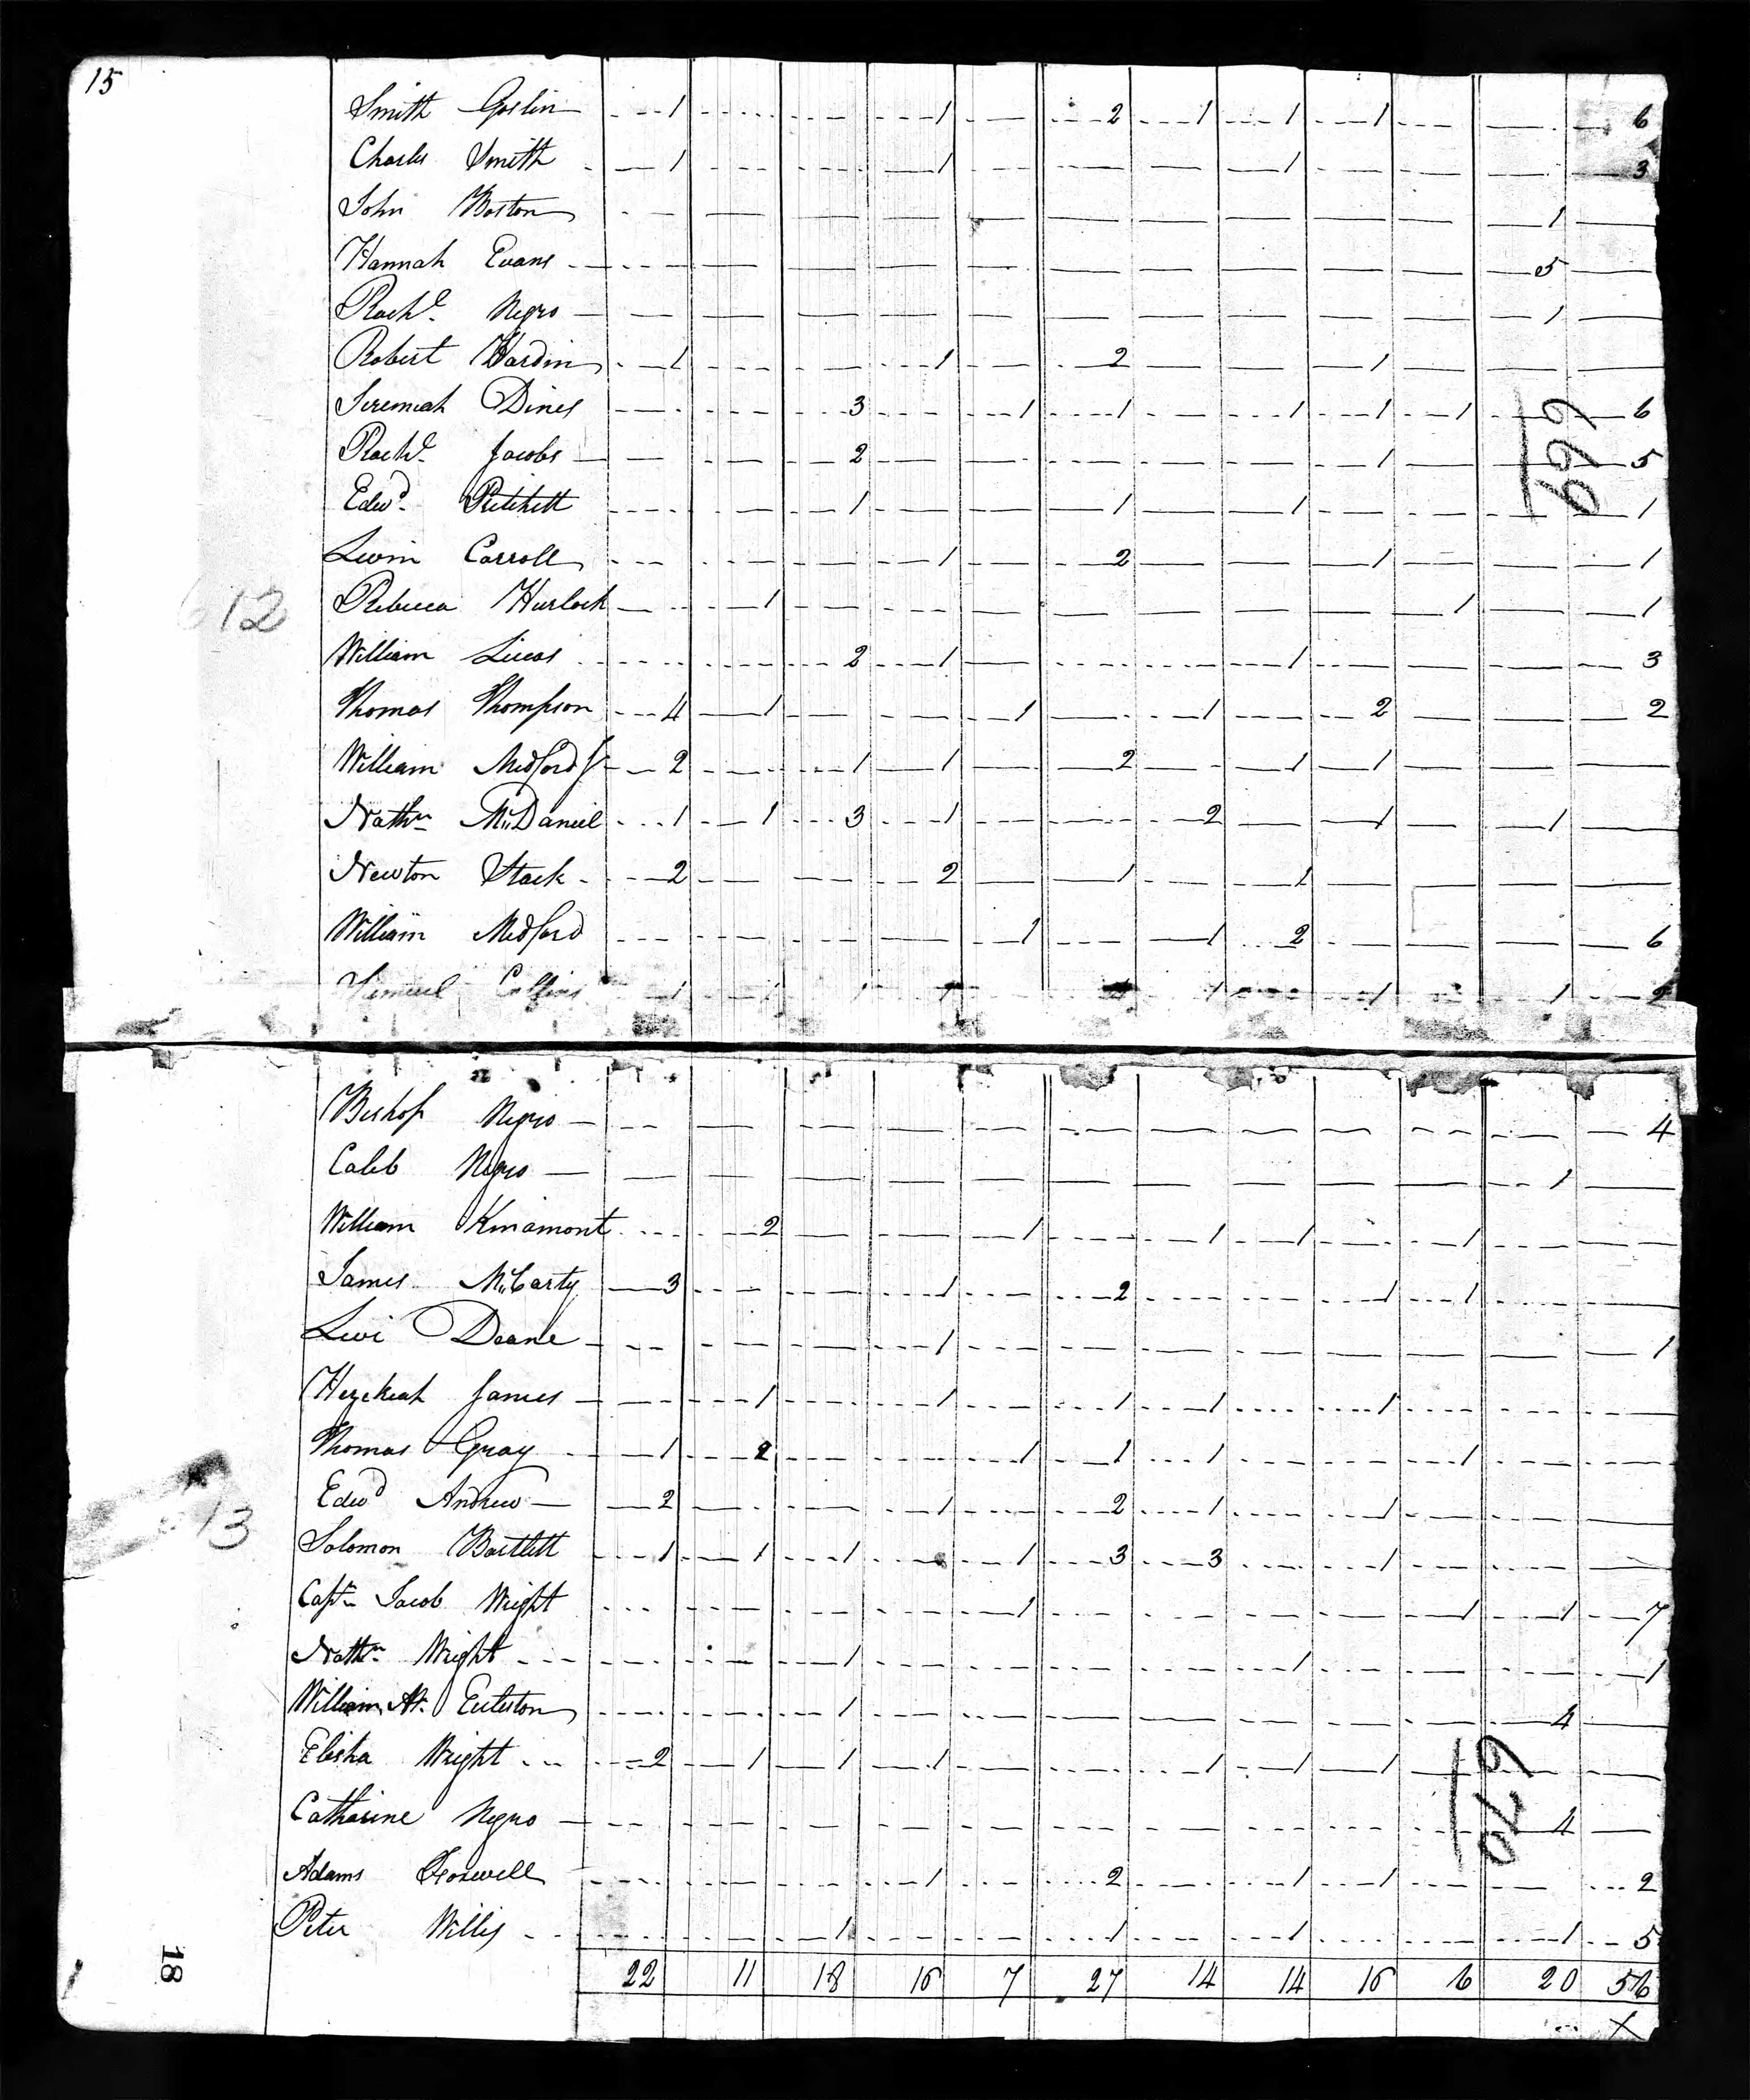 15
Smith Goslin 1 1 2 1 1 1 6
Charles Smith 1 1 1 3
John Boston 1
Hannah Evans 5
Rachl. Negro 1
Robert Hardin 1 1 2 1
Jeremiah Dines 3 1 1 1 1 1 6
Rachl. Jacobs 2 1 5
Edwd. Pritchett 1 1 1 1
Levin Carroll 1 2 1 1
612 Rebecca Hurlock 1 1 1
William Lucas 2 1 1 3
Thomas Thompson 4 1 1 1 2 2
William Medford Jr 2 1 1 2 1 1
Nathn. McDaniel 1 1 3 1 2 1 1
Newton Stack 2 2 1 1
William Medford 1 1 2 6
Samuel Collins 1 1 1 1 1 1 1 2
669
Bishop Negro 4
Caleb Negro 1
William Kinamont 2 1 1 1 1
James McCarty 3 1 2 1 1
Levi Deane 1 1
Hezekiah James 1 1 1 1 1
Thomas Gray 1 2 1 1 1 1
Edwd Andrew 2 1 2 1 1
613
Solomon Bartlett 1 1 1 1 3 3 1
Captn Jacob Wright 1 1 1 7
Nathn. Wright 1 1 1
William W. Eccleston 1 4
Elisha Wright 2 1 1 1 1 1 1
Catharine Negro 4
Adams 1 2 1 1 2
Peter Willis 1 1 1 1 5
670
18
22 11 18 16 7 27 14 14 16 6 20 56
X